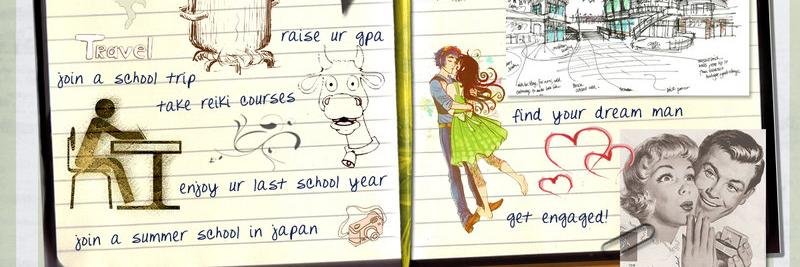 raise ur gpa
Travel
join a school trip
take reiki courses
enjoy ur last school year
join a summer school in japan
find your dream man
get engaged!